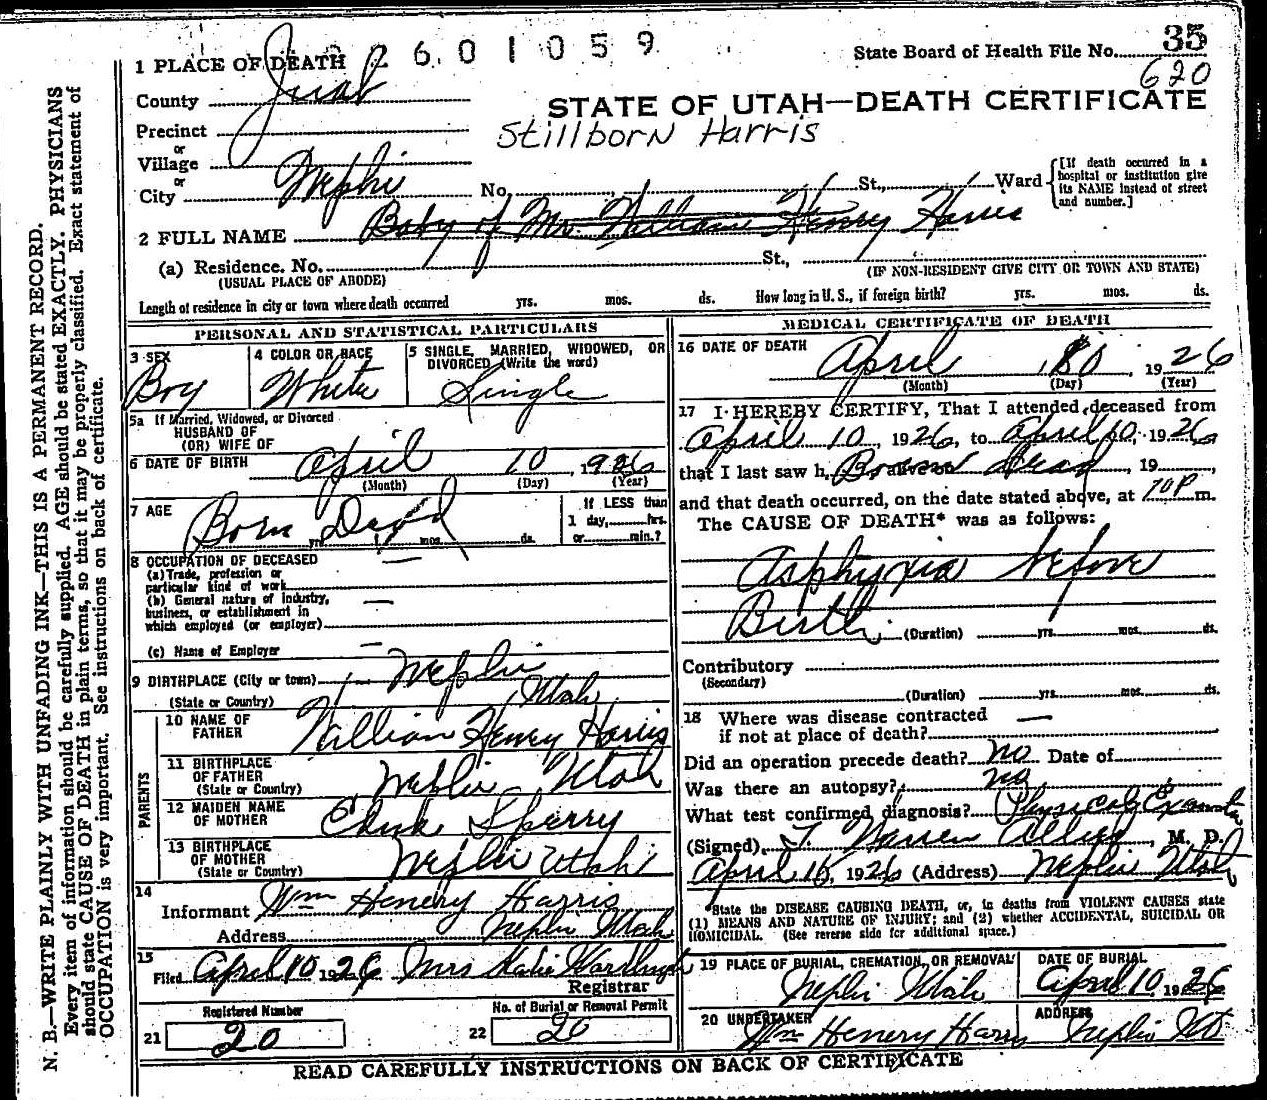 2 6 0 1 0 5 9
35
1 PLACE OF DEATH
State Board of Health File No.
620
County Juab
STATE OF UTAH—DEATH CERTIFICATE
Precinct
Stillborn Harris
or
Village
or
City Nephi No. St., Ward
[If death occurred in a hospital or institution give its NAME instead of street and number.]
2 FULL NAME Baby of Mr. William Henry Harris
(a) Residence. No. St.,
(USUAL PLACE OF ABODE) (IF NON-RESIDENT GIVE CITY OR TOWN AND STATE)
Length of residence in city or town where death occurred yrs. mos. ds. How long in U. S., if foreign birth? yrs. mos. ds.
PERSONAL AND STATISTICAL PARTICULARS
3 SEX Boy
4 COLOR OR RACE White
5 SINGLE, MARRIED, WIDOWED, OR DIVORCED (Write the word) Single
5a If Married, Widowed, or Divorced
HUSBAND OF
(OR) WIFE OF
6 DATE OF BIRTH April 10, 1926
(Month) (Day) (Year)
7 AGE Born Dead
yrs. mos. ds.
If LESS than
1 day, hrs.
or min.?
8 OCCUPATION OF DECEASED —
(a) Trade, profession or
particular kind of work
(b) General nature of industry,
business, or establishment in
which employed (or employer) —
(c) Name of Employer —
9 BIRTHPLACE (City or town) Nephi
(State or Country) Utah
PARENTS
10 NAME OF FATHER William Henry Harris
11 BIRTHPLACE OF FATHER Nephi Utah
(State or Country)
12 MAIDEN NAME OF MOTHER Sperry
13 BIRTHPLACE OF MOTHER Nephi Utah
(State or Country)
14
Informant Wm Henery Harris
Address Nephi Utah
15
Filed April 10 1926 Mrs Katie
Registrar
Registered Number
21 20
No. of Burial or Removal Permit
22 20
MEDICAL CERTIFICATE OF DEATH
16 DATE OF DEATH April 10, 1926
(Month) (Day) (Year)
17 I HEREBY CERTIFY, That I attended deceased from
April 10, 1926, to April 10, 1926
that I last saw h Born Dead, 19
and that death occurred, on the date stated above, at m.
The CAUSE OF DEATH* was as follows:
Asphyxia before
Birth
(Duration) yrs. mos. ds.
Contributory
(Secondary)
(Duration) yrs. mos. ds.
18 Where was disease contracted
if not at place of death? —
Did an operation precede death? no Date of
Was there an autopsy? no
What test confirmed diagnosis? Physical
(Signed) T. Warren M. D.
April 1926 (Address) Nephi Utah
*State the DISEASE CAUSING DEATH, or, in deaths from VIOLENT CAUSES state
(1) MEANS AND NATURE OF INJURY; and (2) whether ACCIDENTAL, SUICIDAL OR
HOMICIDAL. (See reverse side for additional space.)
19 PLACE OF BURIAL, CREMATION, OR REMOVAL Nephi Utah
DATE OF BURIAL April 10 1926
20 UNDERTAKER Wm Henery Harris
ADDRESS Nephi Ut
READ CAREFULLY INSTRUCTIONS ON BACK OF CERTIFICATE
N. B.—WRITE PLAINLY WITH UNFADING INK—THIS IS A PERMANENT RECORD.
Every item of information should be carefully supplied. AGE should be stated EXACTLY. PHYSICIANS
should state CAUSE OF DEATH in plain terms, so that it may be properly classified. Exact statement of
OCCUPATION is very important. See instructions on back of certificate.